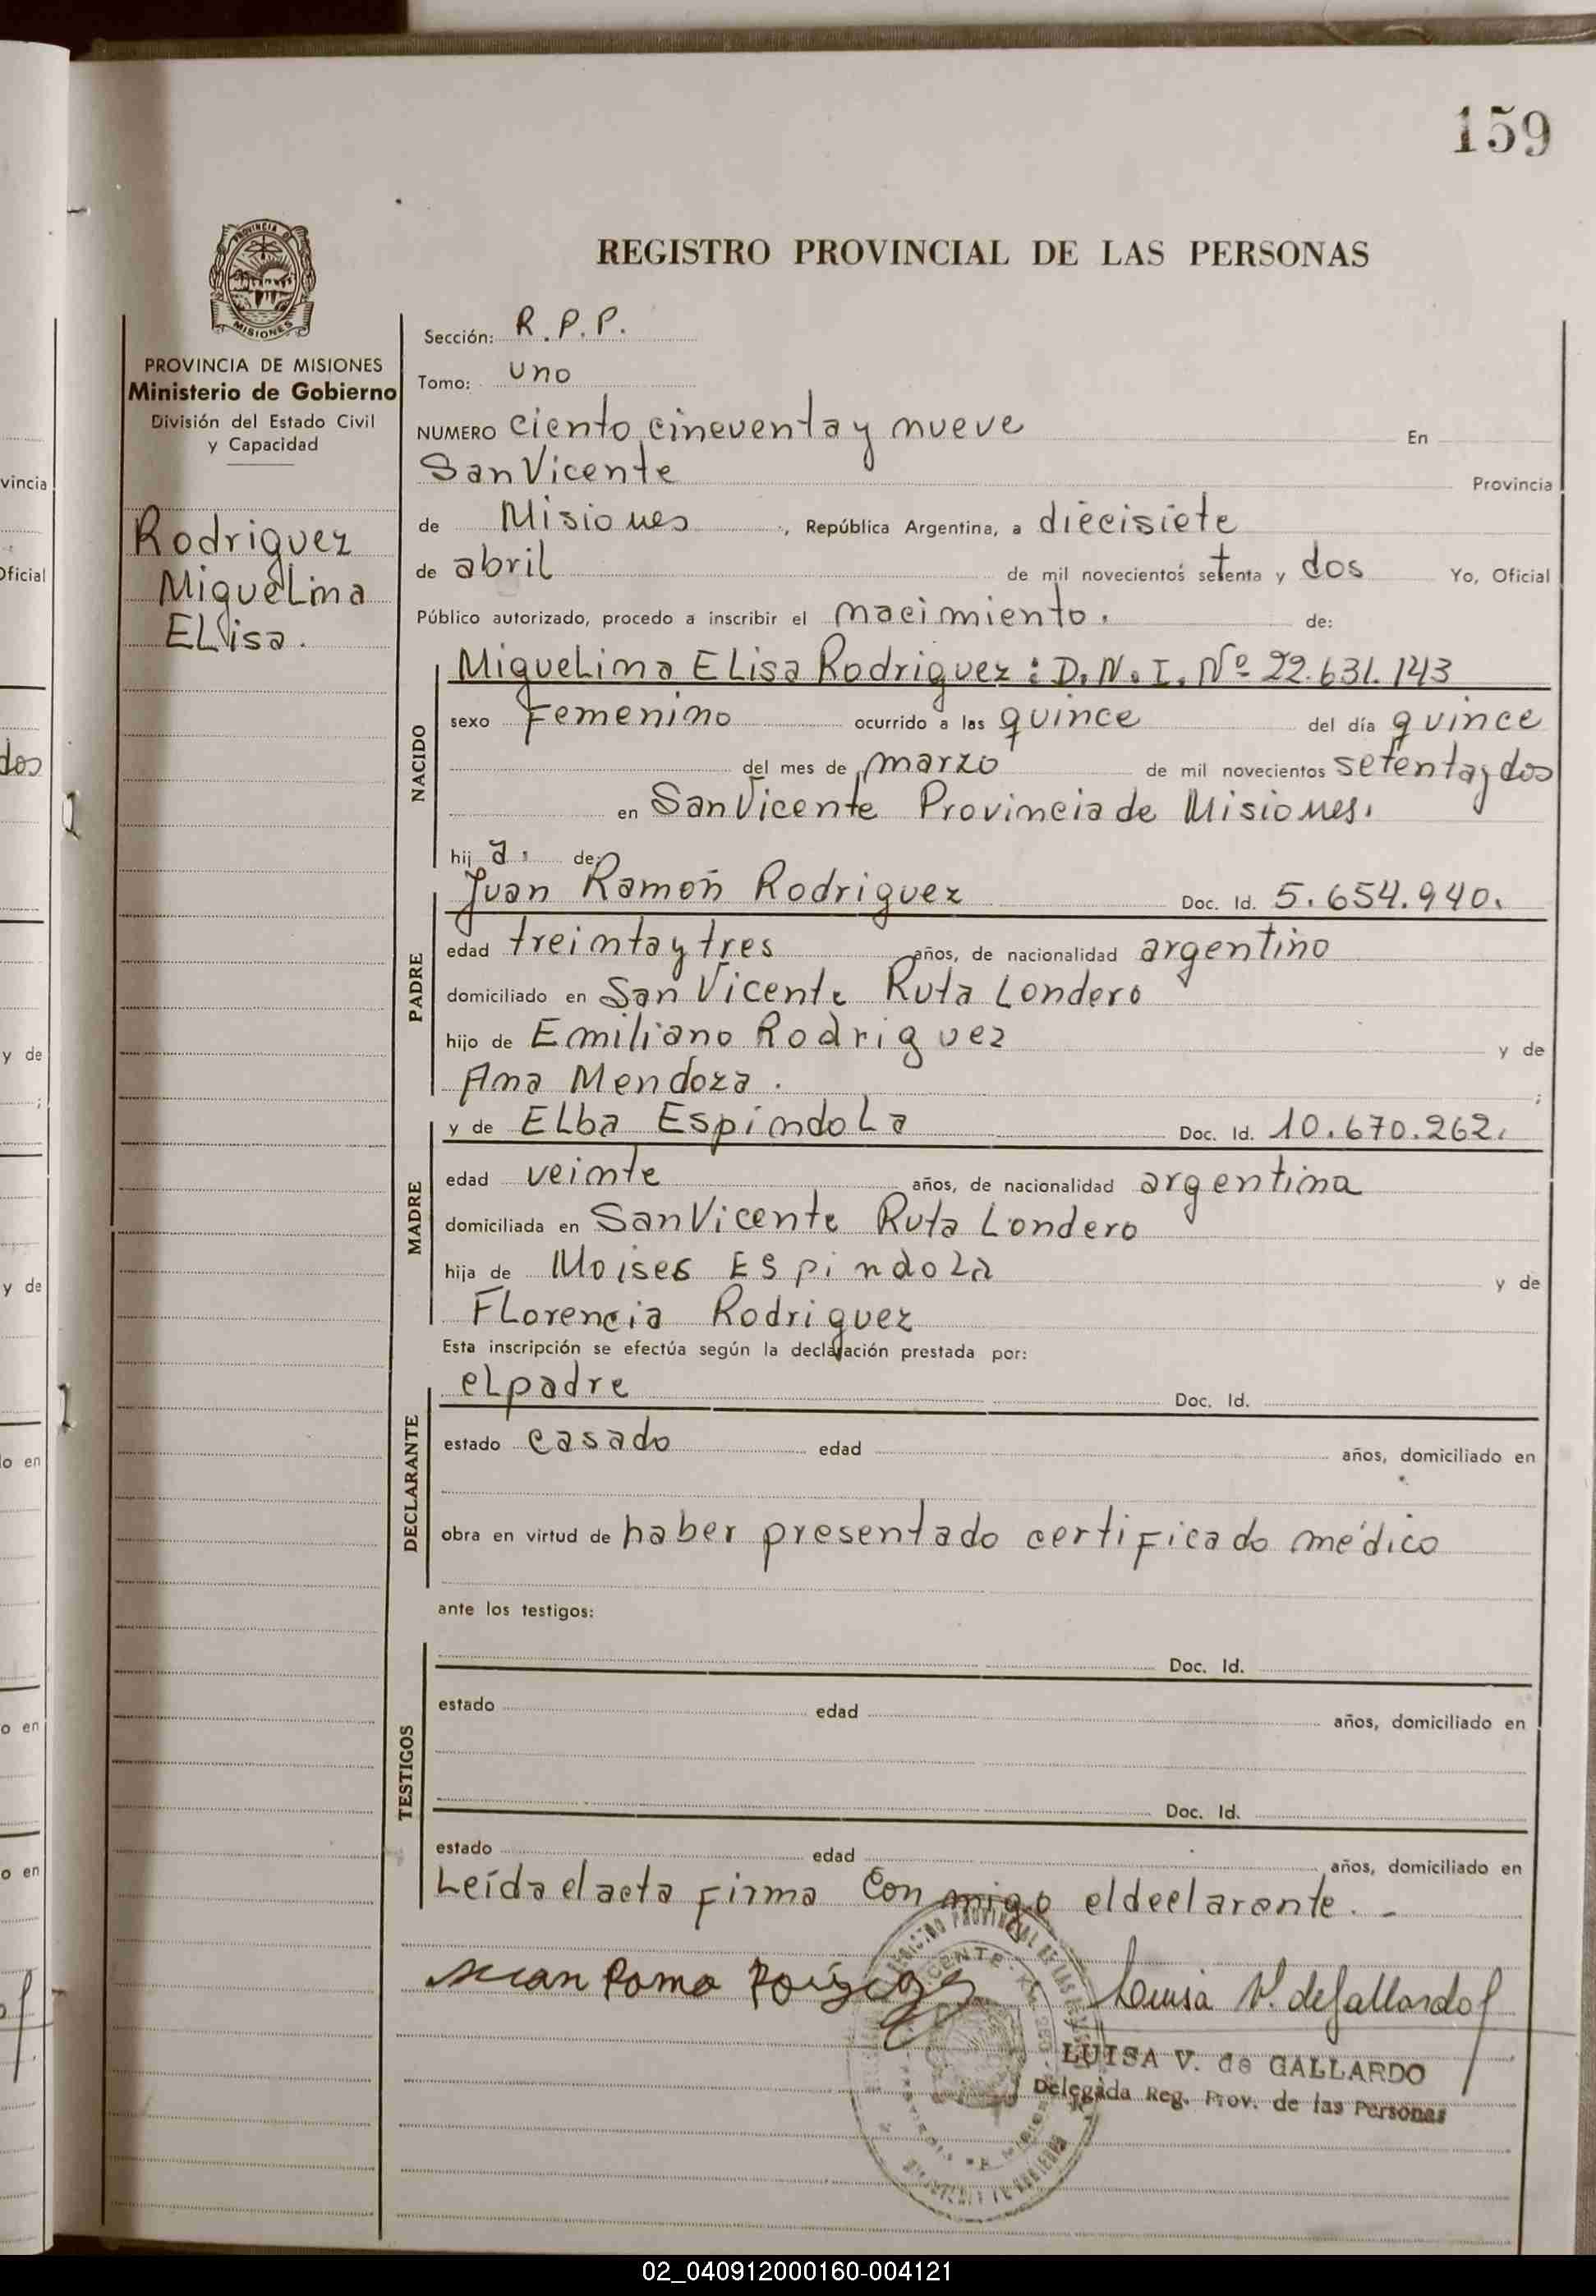 159
REGISTRO PROVINCIAL DE LAS PERSONAS
PROVINCIA DE MISIONES
Ministerio de Gobierno
División del Estado Civil
y Capacidad
Rodriguez
Miguelina
Elisa.
Sección: R.P.P.
Tomo: uno
NUMERO ciento cincuenta y nueve En
San Vicente Provincia
de Misiones, República Argentina, a diecisiete
de abril de mil novecientos setenta y dos Yo, Oficial
Público autorizado, procedo a inscribir el nacimiento. de:
NACIDO
Miguelina Elisa Rodriguez: D.N.I. Nº 22.631.143
sexo Femenino ocurrido a las quince del día quince
del mes de marzo de mil novecientos setenta y dos
en San Vicente Provincia de Misiones.
hij a. de:
PADRE
Juan Ramón Rodriguez Doc. Id. 5.654.940.
edad treinta y tres años, de nacionalidad argentino
domiciliado en San Vicente Ruta Londero
hijo de Emiliano Rodriguez y de
Ana Mendoza. ;
MADRE
y de Elba Espíndola Doc. Id. 10.670.262.
edad veinte años, de nacionalidad argentina
domiciliada en San Vicente Ruta Londero
hija de Moises Espindola y de
Florencia Rodriguez
Esta inscripción se efectúa según la declaración prestada por:
DECLARANTE
el padre Doc. Id.
estado casado edad años, domiciliado en
obra en virtud de haber presentado certificado médico
ante los testigos:
TESTIGOS
Doc. Id.
estado edad años, domiciliado en
Doc. Id.
estado edad años, domiciliado en
Leída el acta firma conmigo el declarante.-
Luisa V. de Gallardo
LUISA V. de GALLARDO
Delegada Reg. Prov. de las Personas
02_040912000160-004121